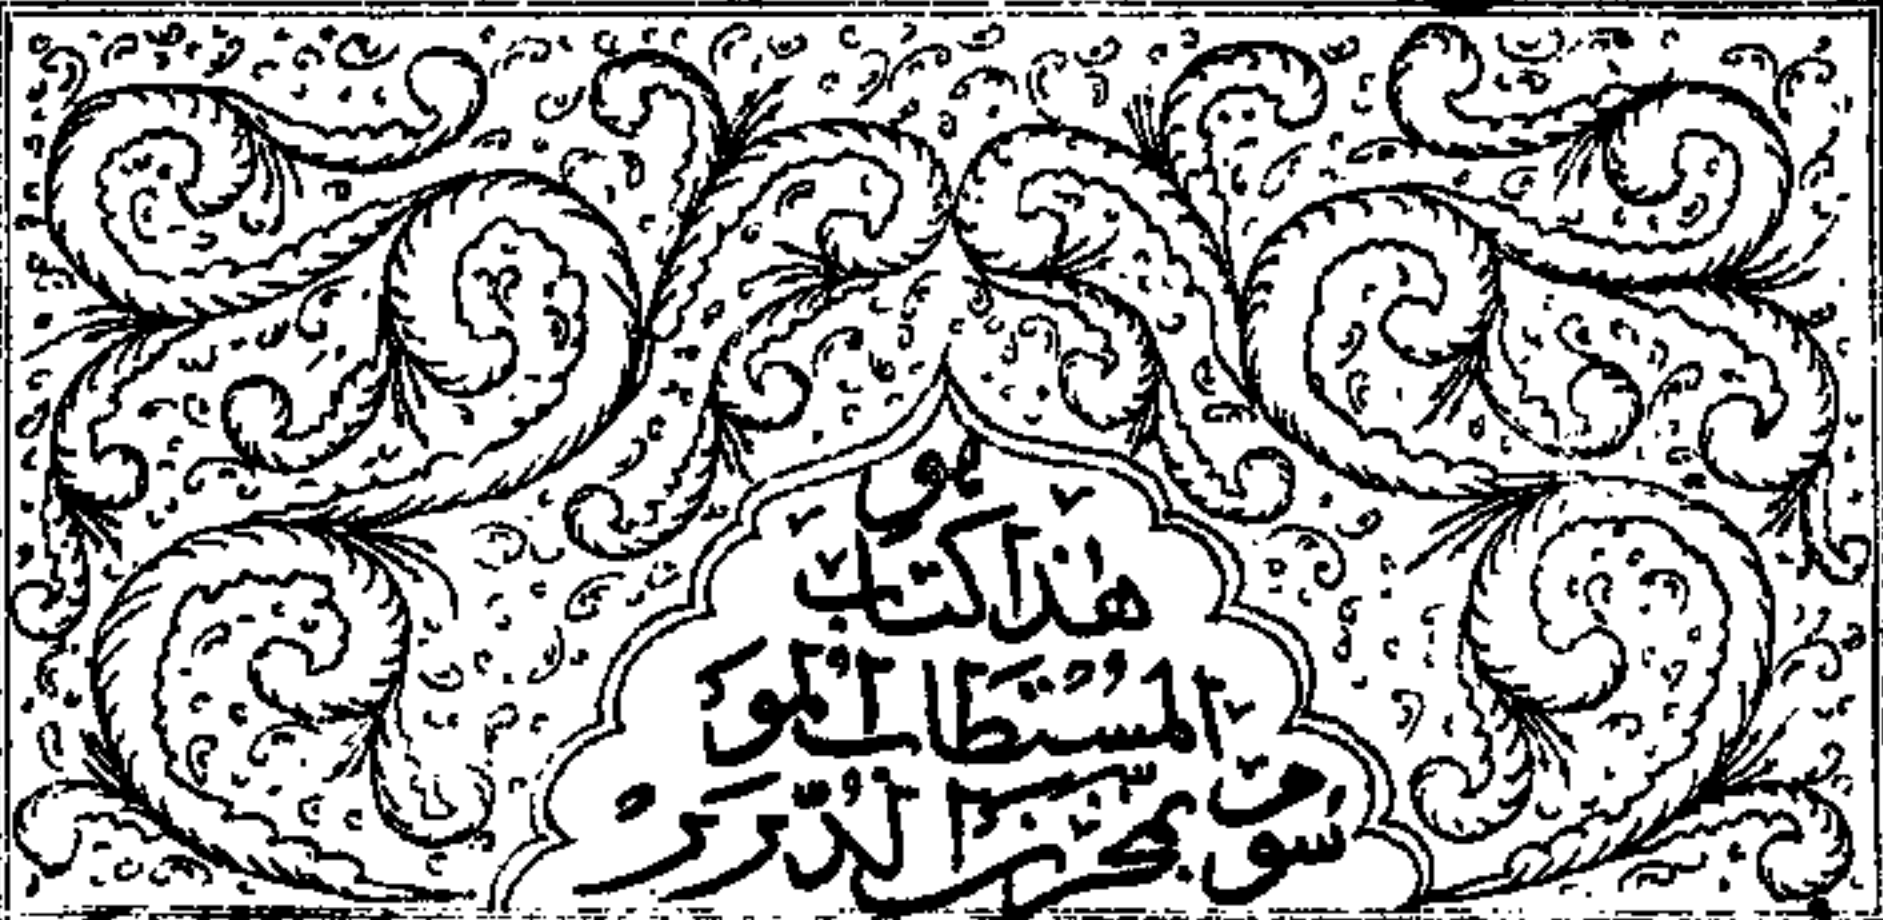 هو
هذا كتاب
المستطاب المو
سوم بمخزن الدرر